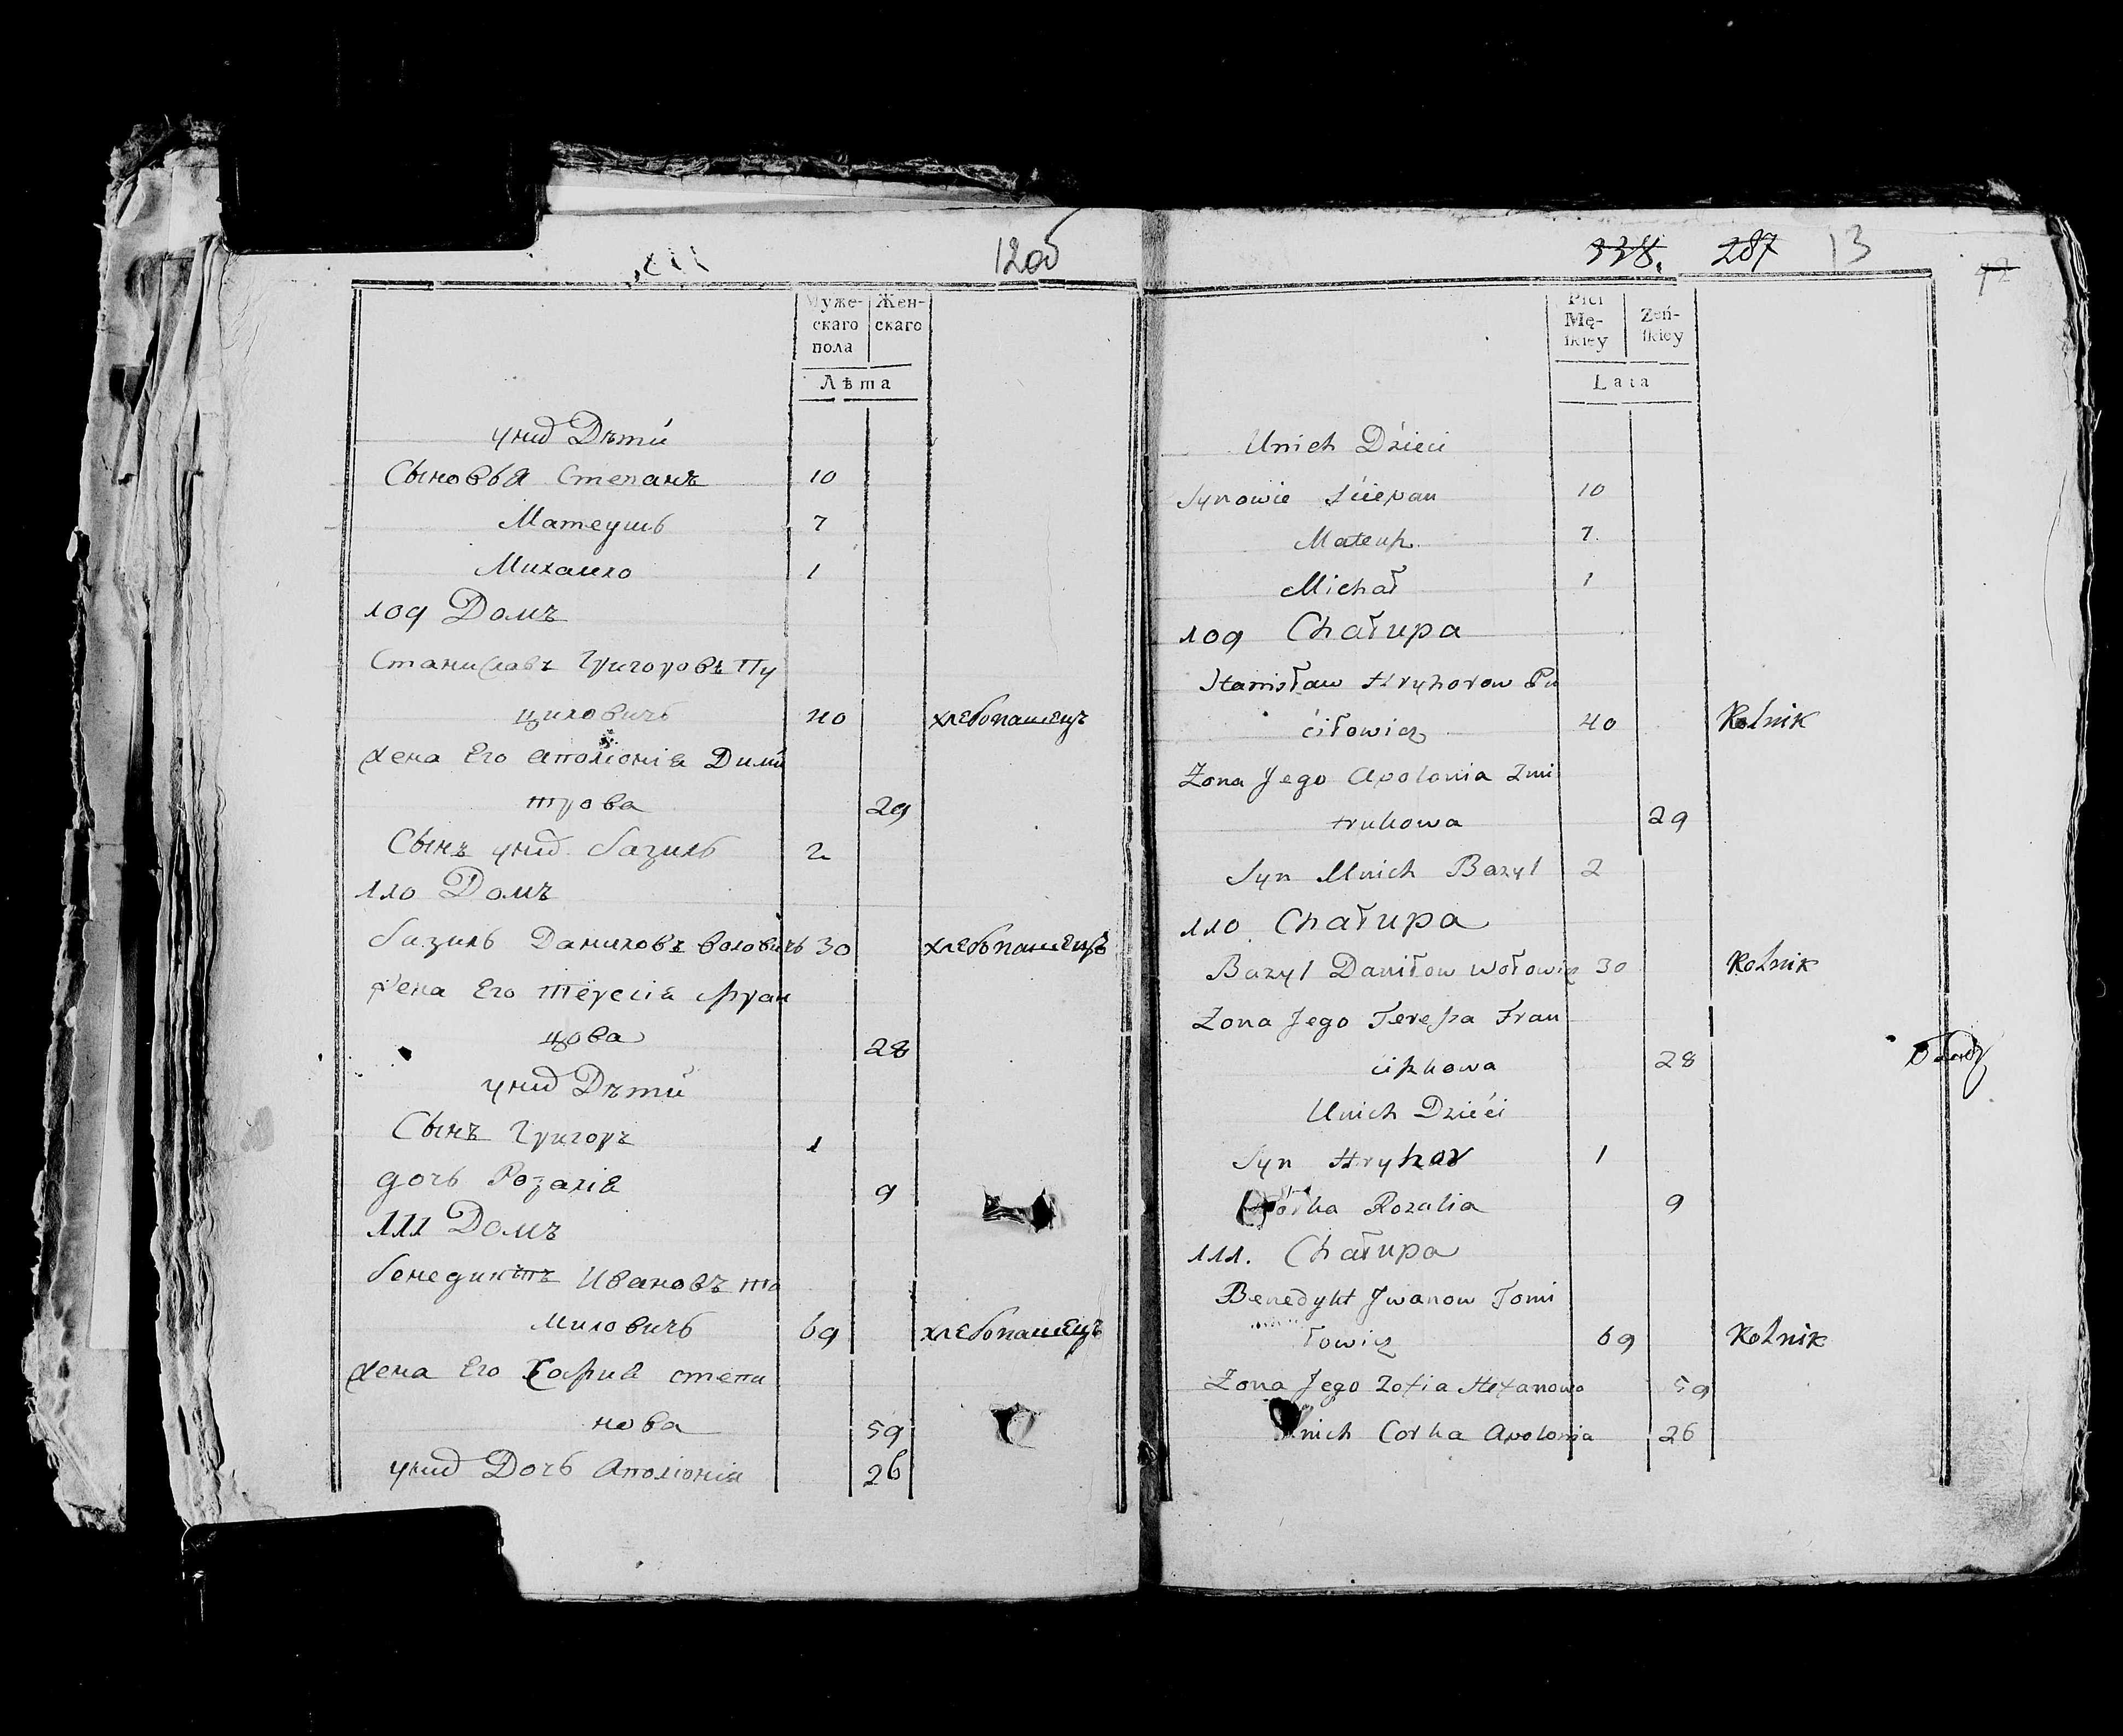 12об
Муже- Жен-
скаго скаго
пола
Лѣта
унид Дѣти
Сыновья Степанъ 10
Матеушъ 7
Михаило 1
109 Домъ
Станиславъ Григоровъ Пу
циловичъ 40 хлебопашецъ
жена Его Аполіонія Дими
трова 29
Сынъ унид базиль 2
110 Домъ
базиль Даниловъ воловичъ 30 хлебопашецъ
жена Его Терессія Фран
цова 28
унид Дѣти
Сынъ Григоръ 1
дочь Розалія 9
111 Домъ
бенедиктъ Ивановъ то
миловичъ 69 хлебопашецъ
жена Его София степа
нова 59
унид Дочь Аполіонія 26
338. 287 13
Płci Żeń-
Mę- skiey
skiey
Lata
Unich Dzieci
Synowie Sciepan 10
Mateusz 7.
Michał 1
109 Chałupa
Stanisław Hryhorow Pu
ciłowicz 40 Rolnik
Zona Jego Apolonia Zmi
trukowa 29
Syn Unich Bazyl 2
110 Chałupa
Bazyl Daniłow Wołowicz 30 Rolnik
Zona Jego Teressa Fran
ciszkowa 28
Unich Dzieci
Syn Hryhor 1
Córka Rozalia 9
111. Chałupa
Benedykt Jwanow Tomi
łowicz 69 Rolnik
Zona Jego Zofia Stefanowa 59
Unich Corka Apolonia 26